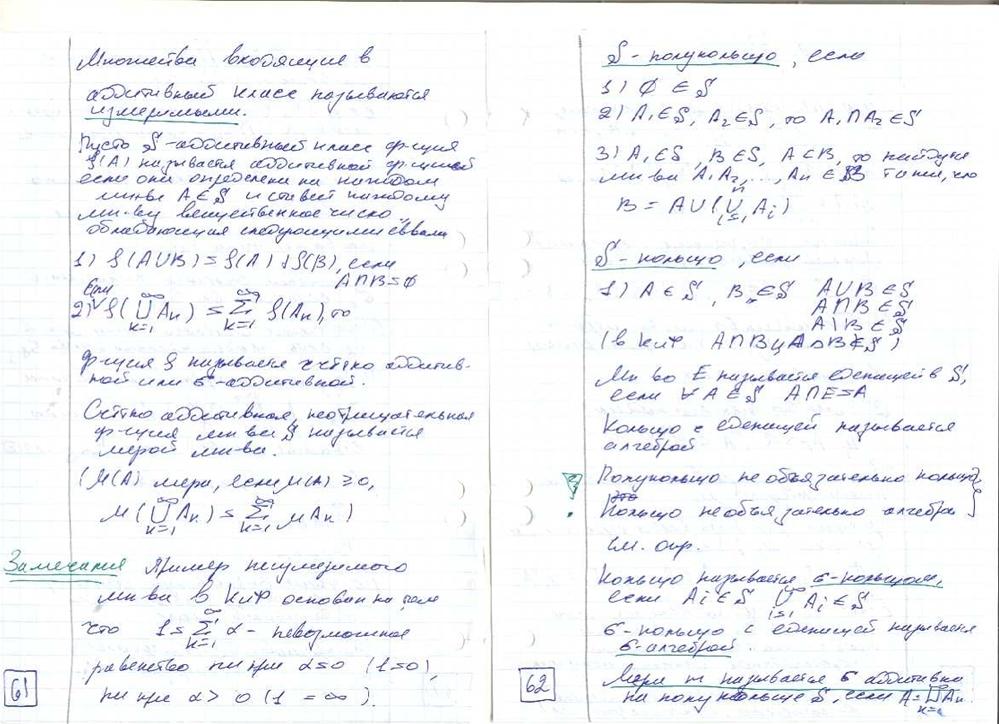 Множества входящие в
аддитивный класс называются
измеримыми.
Пусть S - аддитивный класс ф-ция
φ(A) называется аддитивной ф-цией
если они определена на каждом
мн-ве A∈S и ставит каждому
мн-ву вещественное число
обладающая следующими
1) φ(A∪B) = φ(A) + φ(B), если
A∩B=∅
Если
2) φ(⋃_{k=1}^{∞} Aₖ) = ∑_{k=1}^{∞} φ(Aₖ), то
ф-ция φ называется счётно аддитив-
ной или σ-аддитивной.
Счётно аддитивная, неотрицательная
ф-ция мн-ва S называется
мерой мн-ва.
(μ(A) мера, если μ(A) ≥ 0,
μ(⋃_{k=1}^{∞} Aₖ) = ∑_{k=1}^{∞} μAₖ)
Замечания Пример неизмеримого
мн-ва в КиФ основан на том
что 1 = ∑_{k=1}^{∞} α - невозможное
равенство ни при α=0 (1=0)
ни при α > 0 (1 = ∞).
61
S - полукольцо, если
1) ∅ ∈ S
2) A₁∈S, A₂∈S, то A₁∩A₂∈S
3) A₁∈S, B∈S, A⊂B, то найдутся
мн-ва A₁A₂, ..., Aₙ∈S такие, что
B = A∪(⋃_{i=1}^{n} Aᵢ)
S - кольцо, если
1) A∈S, B∈S A∪B∈S
A∩B∈S
A\B∈S
(в КиФ A∩B и A△B∈S)
Мн-во E называется единицей в S,
если ∀ A∈S A∩E=A
Кольцо с единицей называется
алгеброй
! Полукольцо не объязательно кольцо
Кольцо необъязательно алгебра
см. опр.
Кольцо называется σ-кольцом,
если Aᵢ∈S ⋃_{i=1}^{∞} Aᵢ∈S
σ-кольцо с единицей называется
σ-алгеброй.
Мера m называется σ аддитивна
на полукольце S, если A=⋃_{k=1} Aₖ
62